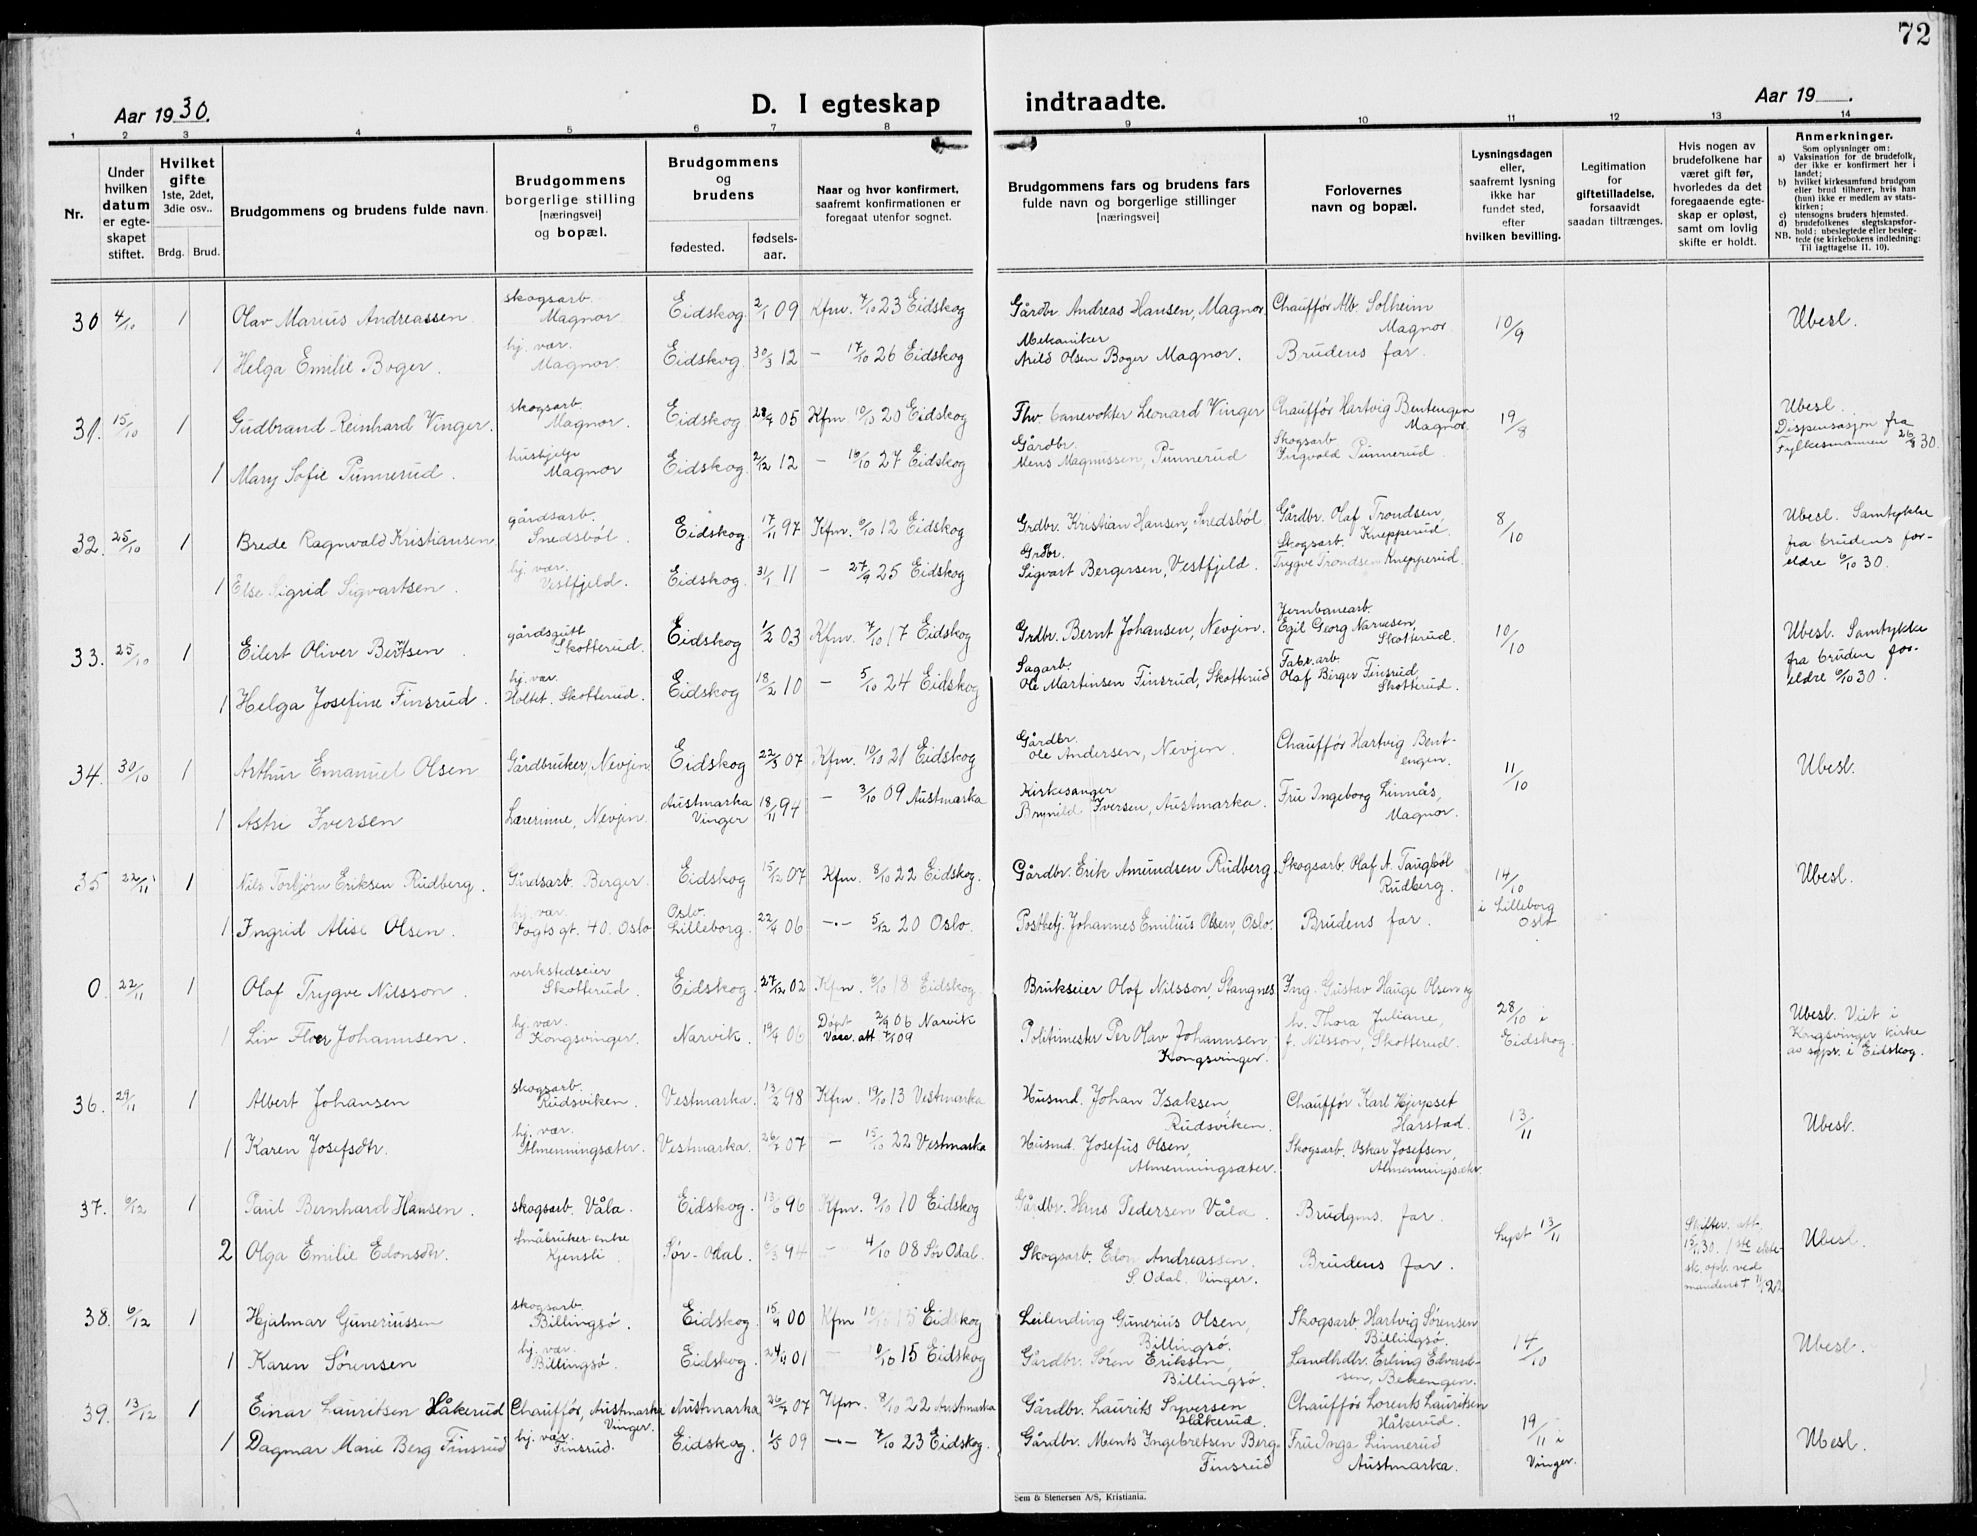 72
Aar 1930.
D. I egteskap indtraadte.
Aar 19 .
1 2 3 4 5 6 7 8 9 10 11 12 13 14
Nr.
Under hvilken datum er egteskapet stiftet.
Hvilket gifte 1ste, 2det, 3die osv..
Brdg. Brud.
Brudgommens og brudens fulde navn.
Brudgommens borgerlige stilling [næringsvei] og bopæl.
Brudgommens og brudens
fødested.
fødsels-aar.
Naar og hvor konfirmert, saafremt konfirmationen er foregaat utenfor sognet.
Brudgommens fars og brudens fars fulde navn og borgerlige stillinger [næringsvei]
Forlovernes navn og bopæl.
Lysningsdagen eller, saafremt lysning ikke har fundet sted, efter hvilken bevilling.
Legitimation for giftetilladelse, forsaavidt saadan tiltrænges.
Hvis nogen av brudefolkene har været gift før, hvorledes da det foregaaende egteskap er opløst, samt om lovlig skifte er holdt.
Anmerkninger.
Som oplysninger om:
a) Vaksination for de brudefolk, der ikke er konfirmert her i landet;
b) hvilket kirkesamfund brudgom eller brud tilhører, hvis han (hun) ikke er medlem av statskirken;
c) utensogns bruders hjemsted.
d) brudefolkenes slegtskapsforhold; ubeslegtede eller beslegtede (se kirkebokens indledning: Til Iagttagelse II. 10).
NB.
30 4/10 1 Olav Marius Andreassen skogsarb. Magnor Eidskog 2/1 09 Kfm. 7/10 23 Eidskog Gårdbr. Andreas Hansen, Magnor Chauffør Alb. Solheim Magnor 10/9 Ubesl.
1 Helga Emilie Boger. hj. vær. Magnor. Eidskog 30/3 12 — 17/10 26 Eidskog Mekaniker Arild Olsen Boger Magnor. Brudens far.
31. 15/10 1 Gudbrand Reinhard Vinger. skogsarb. Magnor. Eidskog 28/4 05 Kfm 10/10 20 Eidskog Fhv. banevokter Leonard Vinger Chauffør Hartvig Bentengen Magnor 19/8 Ubesl. Dispensasjon fra Fylkesmannen 26/8 30.
1 Mary Sofie Punnerud. hushjelp Magnor Eidskog 2/12 12 — 16/10 27 Eidskog Gårdbr. Mens Magnussen, Punnerud Skogsarb Ingvald Punnerud.
32. 25/10 1 Brede Ragnvald Kristiansen gårdsarb. Snedsböl. Eidskog 17/11 97 Kfm. 6/10 12 Eidskog Grdbr. Kristian Hansen, Snedsböl Gårdbr. Olaf Trondsen Knepperud 8/10 Ubesl. Samtykke fra brudens foreldre 6/10 30.
1 Else Sigrid Sigvartsen. hj. vær. Vestfjeld. Eidskog. 31/1 11 — 27/9 25 Eidskog Grdbr. Sigvart Bergersen, Vestfjeld. Skogsarb. Trygve Trondsen Knepperud.
33. 25/10 1 Eilert Oliver Berntsen. gårdsgutt Skotterud. Eidskog 1/2 03 Kfm. 7/10 17 Eidskog Grdbr. Bernt Johansen, Nevjen. Jernbanearb. Egil Georg Narvesen, Skotterud. 10/10 Ubesl. Samtykke fra bruden foreldre 6/10 30.
1 Helga Josefine Finsrud. hj. vær. Holtet. Skotterud. Eidskog 18/2 10 — 5/10 24 Eidskog Sagarb. Ole Martinsen Finsrud, Skotterud Fabr.arb. Olaf Birger Finsrud, Skotterud.
34. 30/10 1 Arthur Emanuel Olsen Gårdbruker, Nevjen. Eidskog 22/3 07 Kfm. 10/10 21 Eidskog Gårdbr. Ole Andersen, Nevjen. Chauffør Hartvig Bentengen. 11/10 Ubesl.
1 Astri Iversen Lærerinne, Nevjen. Austmarka Vinger 18/11 94 — 3/10 09 Austmarka Kirkesanger Brynild Iversen, Austmarka. Fru Ingeborg Linnås, Magnor.
35 22/11 1 Nils Torbjörn Eriksen Rudberg. Gårdsarb. Berger. Eidskog 15/12 07 Kfm. 8/10 22 Eidskog. Gårdbr. Erik Amundsen Rudberg Skogsarb. Olaf A. Taugböl Rudberg. 14/10 i Lilleborg Oslo Ubesl.
1 Ingrid Alise Olsen. hj. vær. Vogts gt. 40. Oslo Oslo. Lilleborg. 22/4 06 —.— 5/12 20 Oslo. Postbetj. Johannes Emilius Olsen, Oslo. Brudens far.
0. 22/11 1 Olaf Trygve Nilsson. verkstedseier Skotterud. Eidskog. 27/12 02 Kfm. 6/10 18 Eidskog. Brukseier Olof Nilsson, Stangnes Ing. Gustav Hauge Olsen og h. Thora Juliane, f. Nilsson, Skotterud. 28/10 i Eidskog. Ubesl. Viet i Kongsvinger kirke av sgpr. i Eidskog.
1 Liv Floer Johannsen. hj. vær. Kongsvinger. Narvik. 19/4 06 Døpt 2/9 06 Narvik Vacc. att. 7/1 09 Politimester Per Olav Johannsen, Kongsvinger.
36. 29/11 1 Albert Johansen skogsarb. Rudsviken. Vestmarka. 13/2 98 Kfm. 19/10 13 Vestmarka Husmd. Johan Isaksen Rudsviken. Chauffør Karl Hjepset Harstad. 13/11 Ubesl.
1 Karen Josefsdtr. hj. vær. Almenningsæter. Vestmarka. 26/7 07 — 15/10 22 Vestmarka Husmd. Josefus Olsen, Almenningsæter. Skogsarb. Oskar Josefsen, Almenningsæter.
37. 6/12 1 Paul Bernhard Hansen. skogsarb. Våla. Eidskog. 13/6 96 Kfm. 9/10 10 Eidskog Gårdbr. Hans Pedersen Våla. Brudgms. far. Lyst 13/11 Ubesl.
2 Olga Emilie Edonsdtr. Småbruker enke Kjensli Sør-Odal. 6/3 94 — 4/10 08 Sør Odal. Skogsarb. Edon Andreassen. S. Odal. Vinger. Brudens far. Skifter. att. 15/11 30. 1ste ektesk. opl. ved mandens †
38. 6/12 1 Hjalmar Guneriussen skogsarb. Billingsö. Eidskog. 15/9 00 Kfm 10/10 15 Eidskog Leilending Gunerius Olsen, Billingsö. Skogsarb. Hartvig Sørensen Billingsö. 14/10 Ubesl.
1 Karen Sørensen hj. vær. Billingsö. Eidskog 24/4 01 — 10/10 15 Eidskog Gårdbr. Søren Eriksen, Billingsö. Landhdlr. Erling Edvardsen, Bekengen.
39. 13/12 1 Einar Lauritsen Håkerud Chauffør, Austmarka Vinger. Austmarka 26/7 07 Kfm. 8/10 22 Austmarka Gårdbr. Laurits Syversen Håkerud. Chauffør Lorents Lauritsen Håkerud. 19/11 i Vinger. Ubesl.
1 Dagmar Marie Berg Finsrud hj. vær. Finsrud. Eidskog. 1/5 09 —.— 7/10 23 Eidskog. Gårdbr. Ments Ingebretsen Berg-Finsrud Fru Inga Linnerud Austmarka.
Sem & Stenersen A/S, Kristiania.